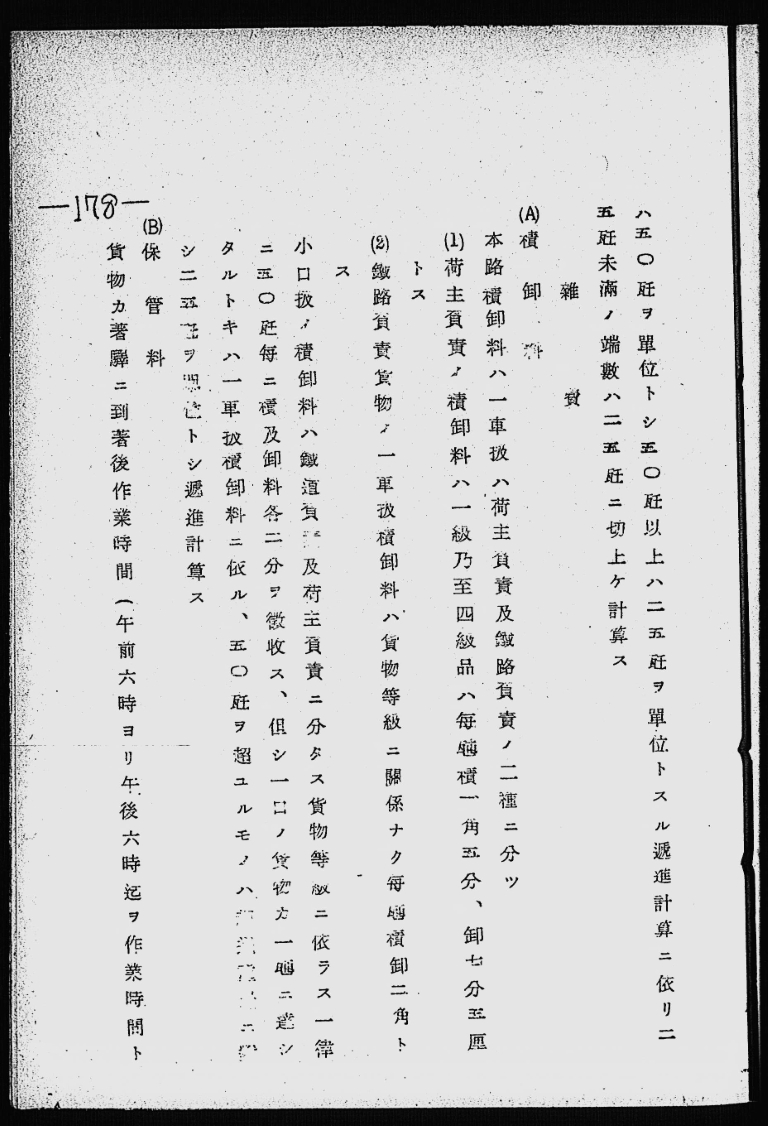 ハ五〇瓩ヲ單位トシ五〇瓩以上ハ二五瓩ヲ單位トスル遞進計算ニ依リ二
五瓩未滿ノ端數ハ二五瓩ニ切上ケ計算ス
雜費
(A) 積卸料
本路積卸料ハ一車扱ハ荷主負責及鐵路負責ノ二種ニ分ツ
(1) 荷主負責ノ積卸料ハ一級乃至四級品ハ每瓲積一角五分、卸七分五厘
トス
(2) 鐵路負責貨物ノ一車扱積卸料ハ貨物等級ニ關係ナク每瓲積卸二角ト
ス
小口扱ノ積卸料ハ鐵道負責及荷主負責ニ分タス貨物等級ニ依ラス一律
ニ五〇瓩每ニ積及卸料各二分ヲ徵收ス、但シ一口ノ貨物カ一瓲ニ達シ
タルトキハ一車扱積卸料ニ依ル、五〇瓩ヲ超ユルモノハ
シ二五瓩ヲ單位トシ遞進計算ス
(B) 保管料
貨物カ著驛ニ到著後作業時間(午前六時ヨリ午後六時迄ヲ作業時間ト
—178—